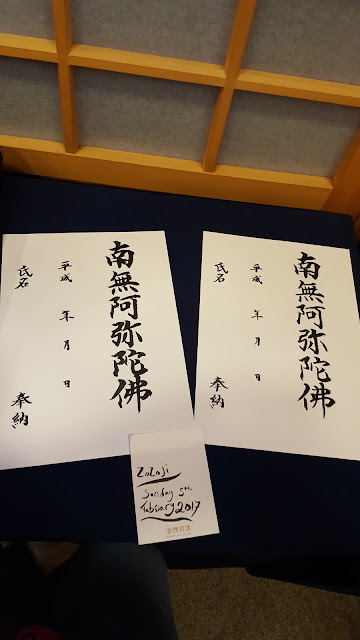 南無阿弥陀佛
平成 年 月 日
氏名 奉納
南無阿弥陀佛
平成 年 月 日
氏名 奉納
ZoZoJi
Sunday 5th
Febuary 2017
法然共生